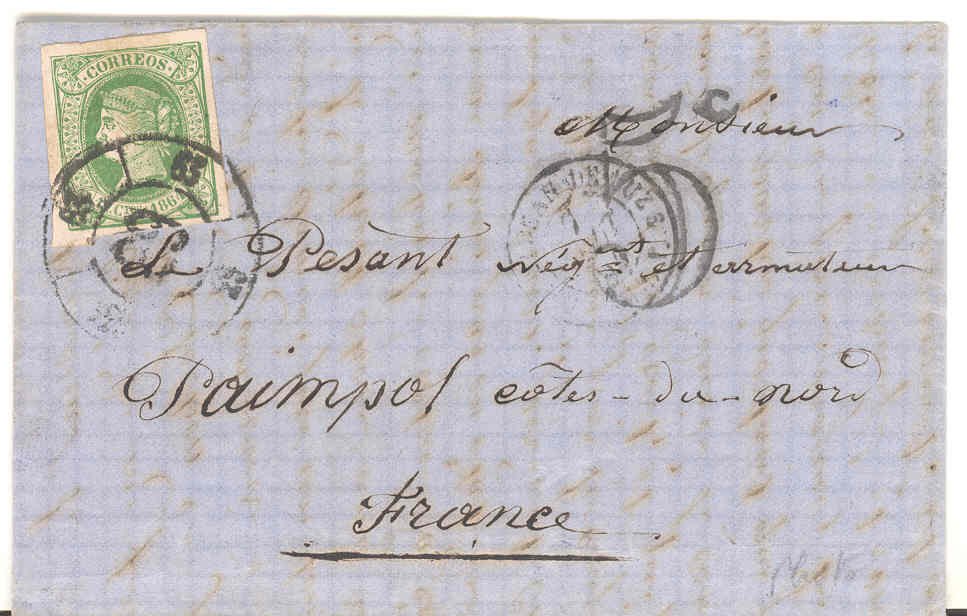 CORREOS
Monsieur
Le Pesant nég.t et armateur
Paimpol côtes-du-nord
France